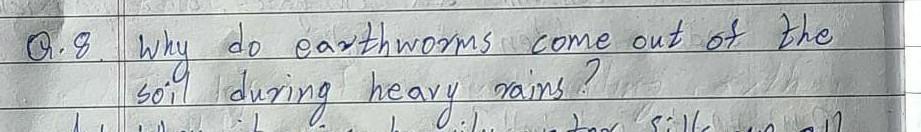 Q.8. Why do earthworms come out of the
soil during heavy rains?